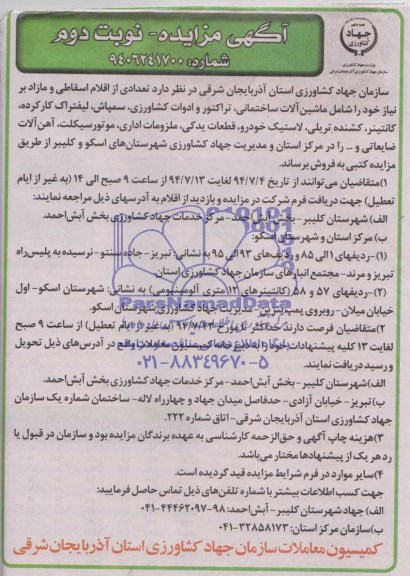 آگهی مزایده- نوبت دوم
شماره: ۹۴۰۶۲۴۱۷۰۰
جهاد کشاورزی
وزارت جهاد کشاورزی
سازمان جهاد کشاورزی آذربایجان شرقی
سازمان جهاد کشاورزی استان آذربایجان شرقی در نظر دارد تعدادی از اقلام اسقاطی و مازاد بر
نیاز خود را شامل ماشین‌آلات ساختمانی، تراکتور و ادوات کشاورزی، سمپاش، لیفتراک کارکرده،
کانتینر، کشنده تریلی، لاستیک خودرو، قطعات یدکی، ملزومات اداری، موتورسیکلت، آهن‌آلات
ضایعاتی و ... را در مرکز استان و مدیریت جهاد کشاورزی شهرستان‌های اسکو و کلیبر از طریق
مزایده کتبی به فروش برساند.
۱)متقاضیان می‌توانند از تاریخ ۹۴/۷/۴ لغایت ۹۴/۷/۱۳ از ساعت ۹ صبح الی ۱۴ (به غیر از ایام
تعطیل) جهت دریافت فرم شرکت در مزایده و بازدید از اقلام به آدرسهای ذیل مراجعه نمایند:
الف) شهرستان کلیبر- بخش آبش‌احمد- مرکز خدمات جهاد کشاورزی بخش آبش‌احمد.
ب) مرکز استان و شهرستان اسکو:
(۱)-ردیفهای ۱ الی ۸۵ و ردیف‌های ۹۳ الی ۹۵ به نشانی: تبریز- جاده سنتو- نرسیده به پلیس‌راه
تبریز و مرند- مجتمع انبارهای سازمان جهاد کشاورزی استان.
(۲)-ردیفهای ۵۷ و ۵۸ (کانتینرهای ۱۲ متری آلومینیومی) به نشانی: شهرستان اسکو- اول
خیابان میلان- روبروی پمپ بنزین- مدیریت جهاد کشاورزی شهرستان اسکو.
۲)متقاضیان فرصت دارند حداکثر تا مورخ ۹۴/۷/۱۳ (به غیر از ایام تعطیل) از ساعت ۹ صبح
لغایت ۱۳ کلیه پیشنهادات خود را به دبیرخانه کمیسیون معاملات واقع در آدرس‌های ذیل تحویل
و رسید دریافت نمایند.
ParsNamadData
۰۲۱-۸۸۳۴۹۶۷۰-۵
الف)شهرستان کلیبر- بخش آبش‌احمد- مرکز خدمات جهاد کشاورزی بخش آبش‌احمد.
ب)تبریز- خیابان آزادی- حدفاصل میدان جهاد و چهارراه لاله- ساختمان شماره یک سازمان
جهاد کشاورزی استان آذربایجان شرقی- اتاق شماره ۲۲۲.
۳)هزینه چاپ آگهی و حق‌الزحمه کارشناسی به عهده برندگان مزایده بود و سازمان در قبول یا
رد هر یک از پیشنهادها مختار می‌باشد.
۴)سایر موارد در فرم شرایط مزایده قید گردیده است.
جهت کسب اطلاعات بیشتر با شماره تلفن‌های ذیل تماس حاصل فرمایید:
الف) جهاد شهرستان کلیبر- آبش‌احمد: ۹۸-۴۴۴۶۲۰۹۷-۰۴۱
ب)سازمان مرکز استان: ۳۲۸۵۸۱۷۳-۰۴۱
کمیسیون معاملات سازمان جهاد کشاورزی استان آذربایجان شرقی